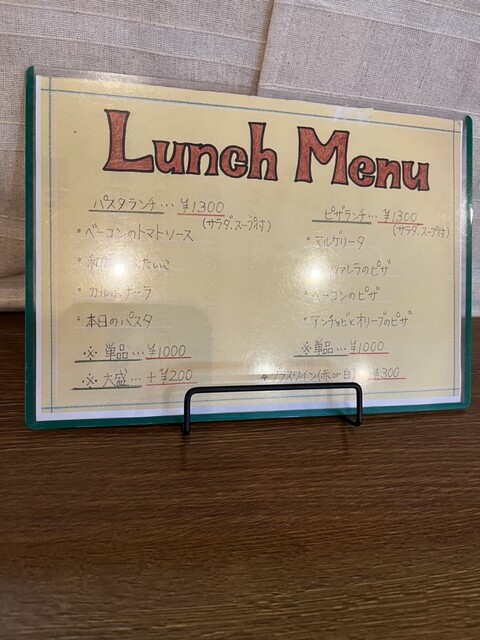 Lunch Menu
パスタランチ… ¥1300
(サラダ、スープ付)
・ベーコンのトマトソース
・カルボナーラ
・本日のパスタ
※ 単品… ¥1000
※ 大盛… +¥200
ピザランチ… ¥1300
(サラダ、スープ付)
・マルゲリータ
ベーコンのピザ
・アンチョビとオリーブのピザ
※ 単品… ¥1000
グラスワイン(赤or白) ¥300